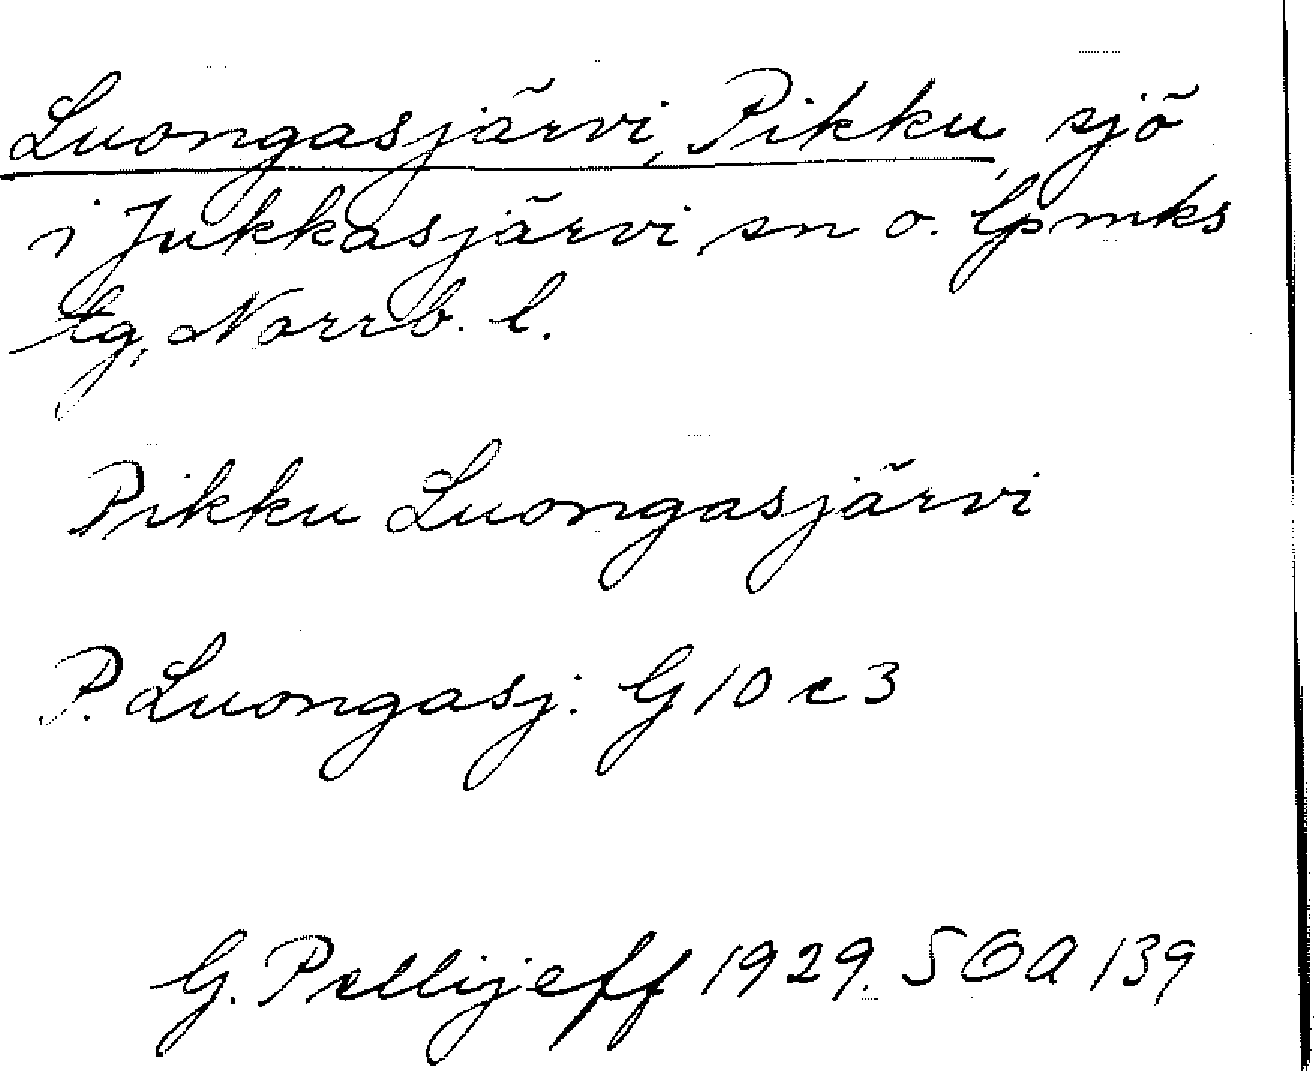 Luongasjärvi, Pikku, sjö
i Jukkasjärvi sn o. lpmks
tg, Norrb. l.
Pikku Luongasjärvi
P. Luongasj: G 10 c 3
G. Pellijeff 1929. SOA 139